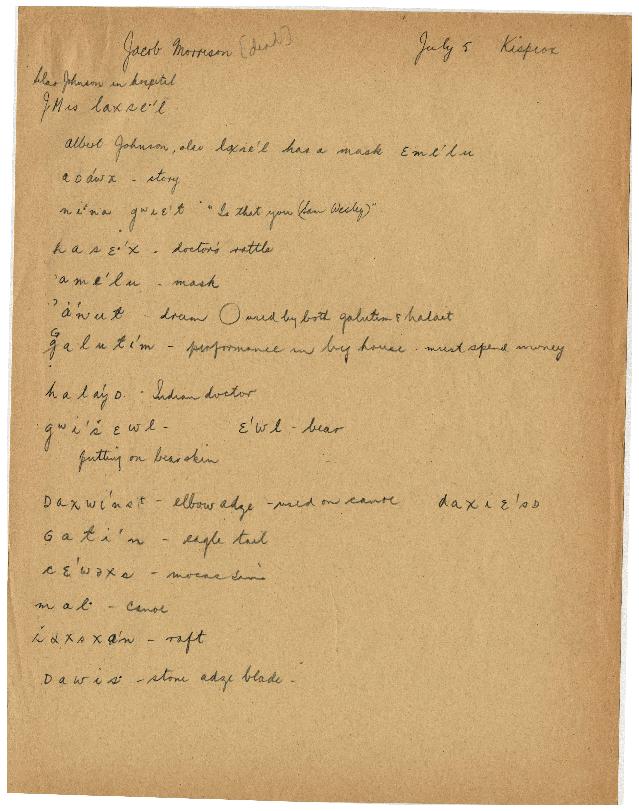 Jacob Morrison [dead] July 5 Kispiox
Silas Johnson in hospital
laxse'l
Albert Johnson, also lxse'l has a mask Eme'lu
aDáwx - story
ni'na gʷiɛ't "Is that you (Sam Wesley)"
hasɛ'x - doctor's rattle
'ame'lu - mask
'ánut - drum ◯ used by both galutim & halaet
Galuti'm - proformance in big house - must spend money
haláyD - Indian doctor
gʷi'sɛwl - ɛ'wl - bear
putting on bearskin
Daxwi'nst - elbow adge - used on canoe daxiɛ'sD
Gati'n - eagle tail
cɛ'wəxs - mocassins
mal - canoe
- raft
Dawis - stone adge blade -